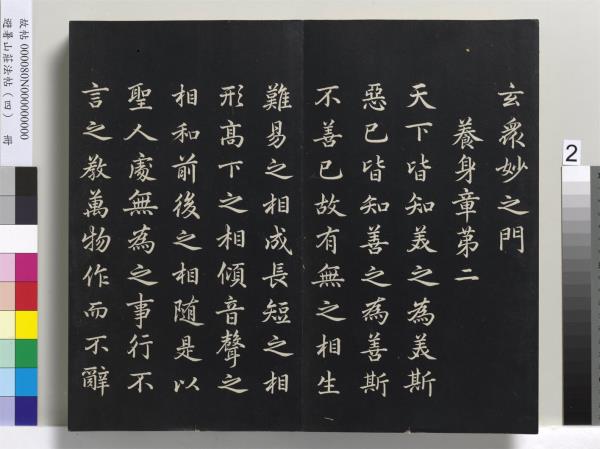 玄衆妙之門
養身章第二
天下皆知美之為美斯
惡已皆知善之為善斯
不善已故有無之相生
難易之相成長短之相
形高下之相傾音聲之
相和前後之相随是以
聖人處無為之事行不
言之教萬物作而不辭
故帖 000080N000000000
避暑山莊法帖(四) 冊
2